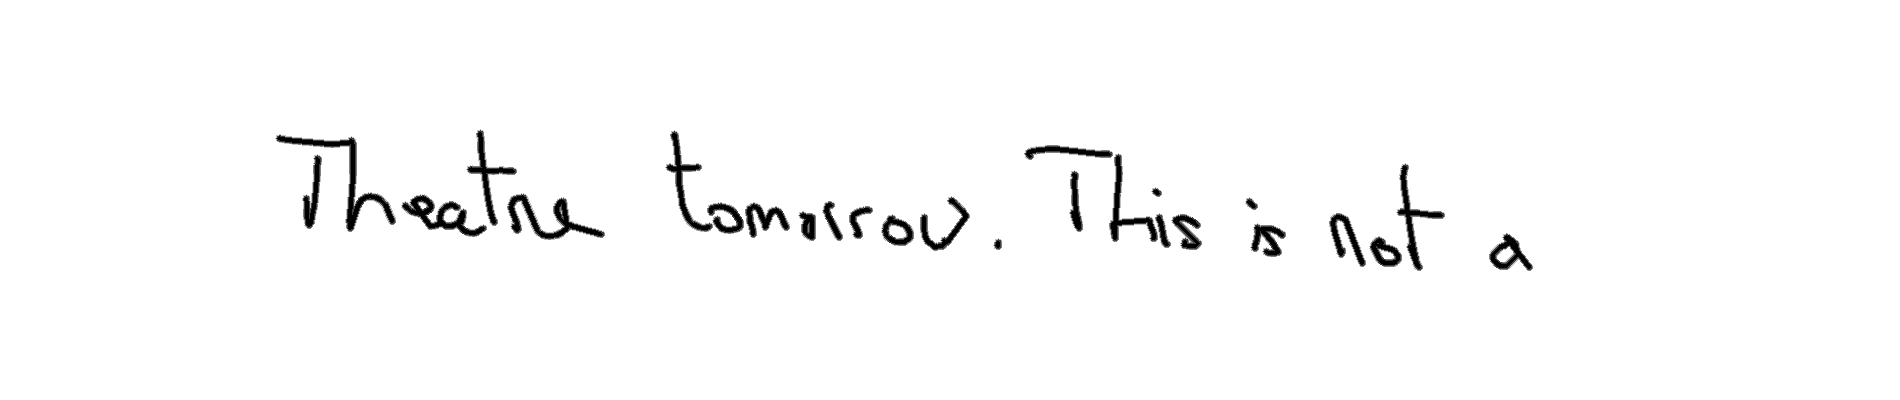 Theatre tomorrow. This is not a